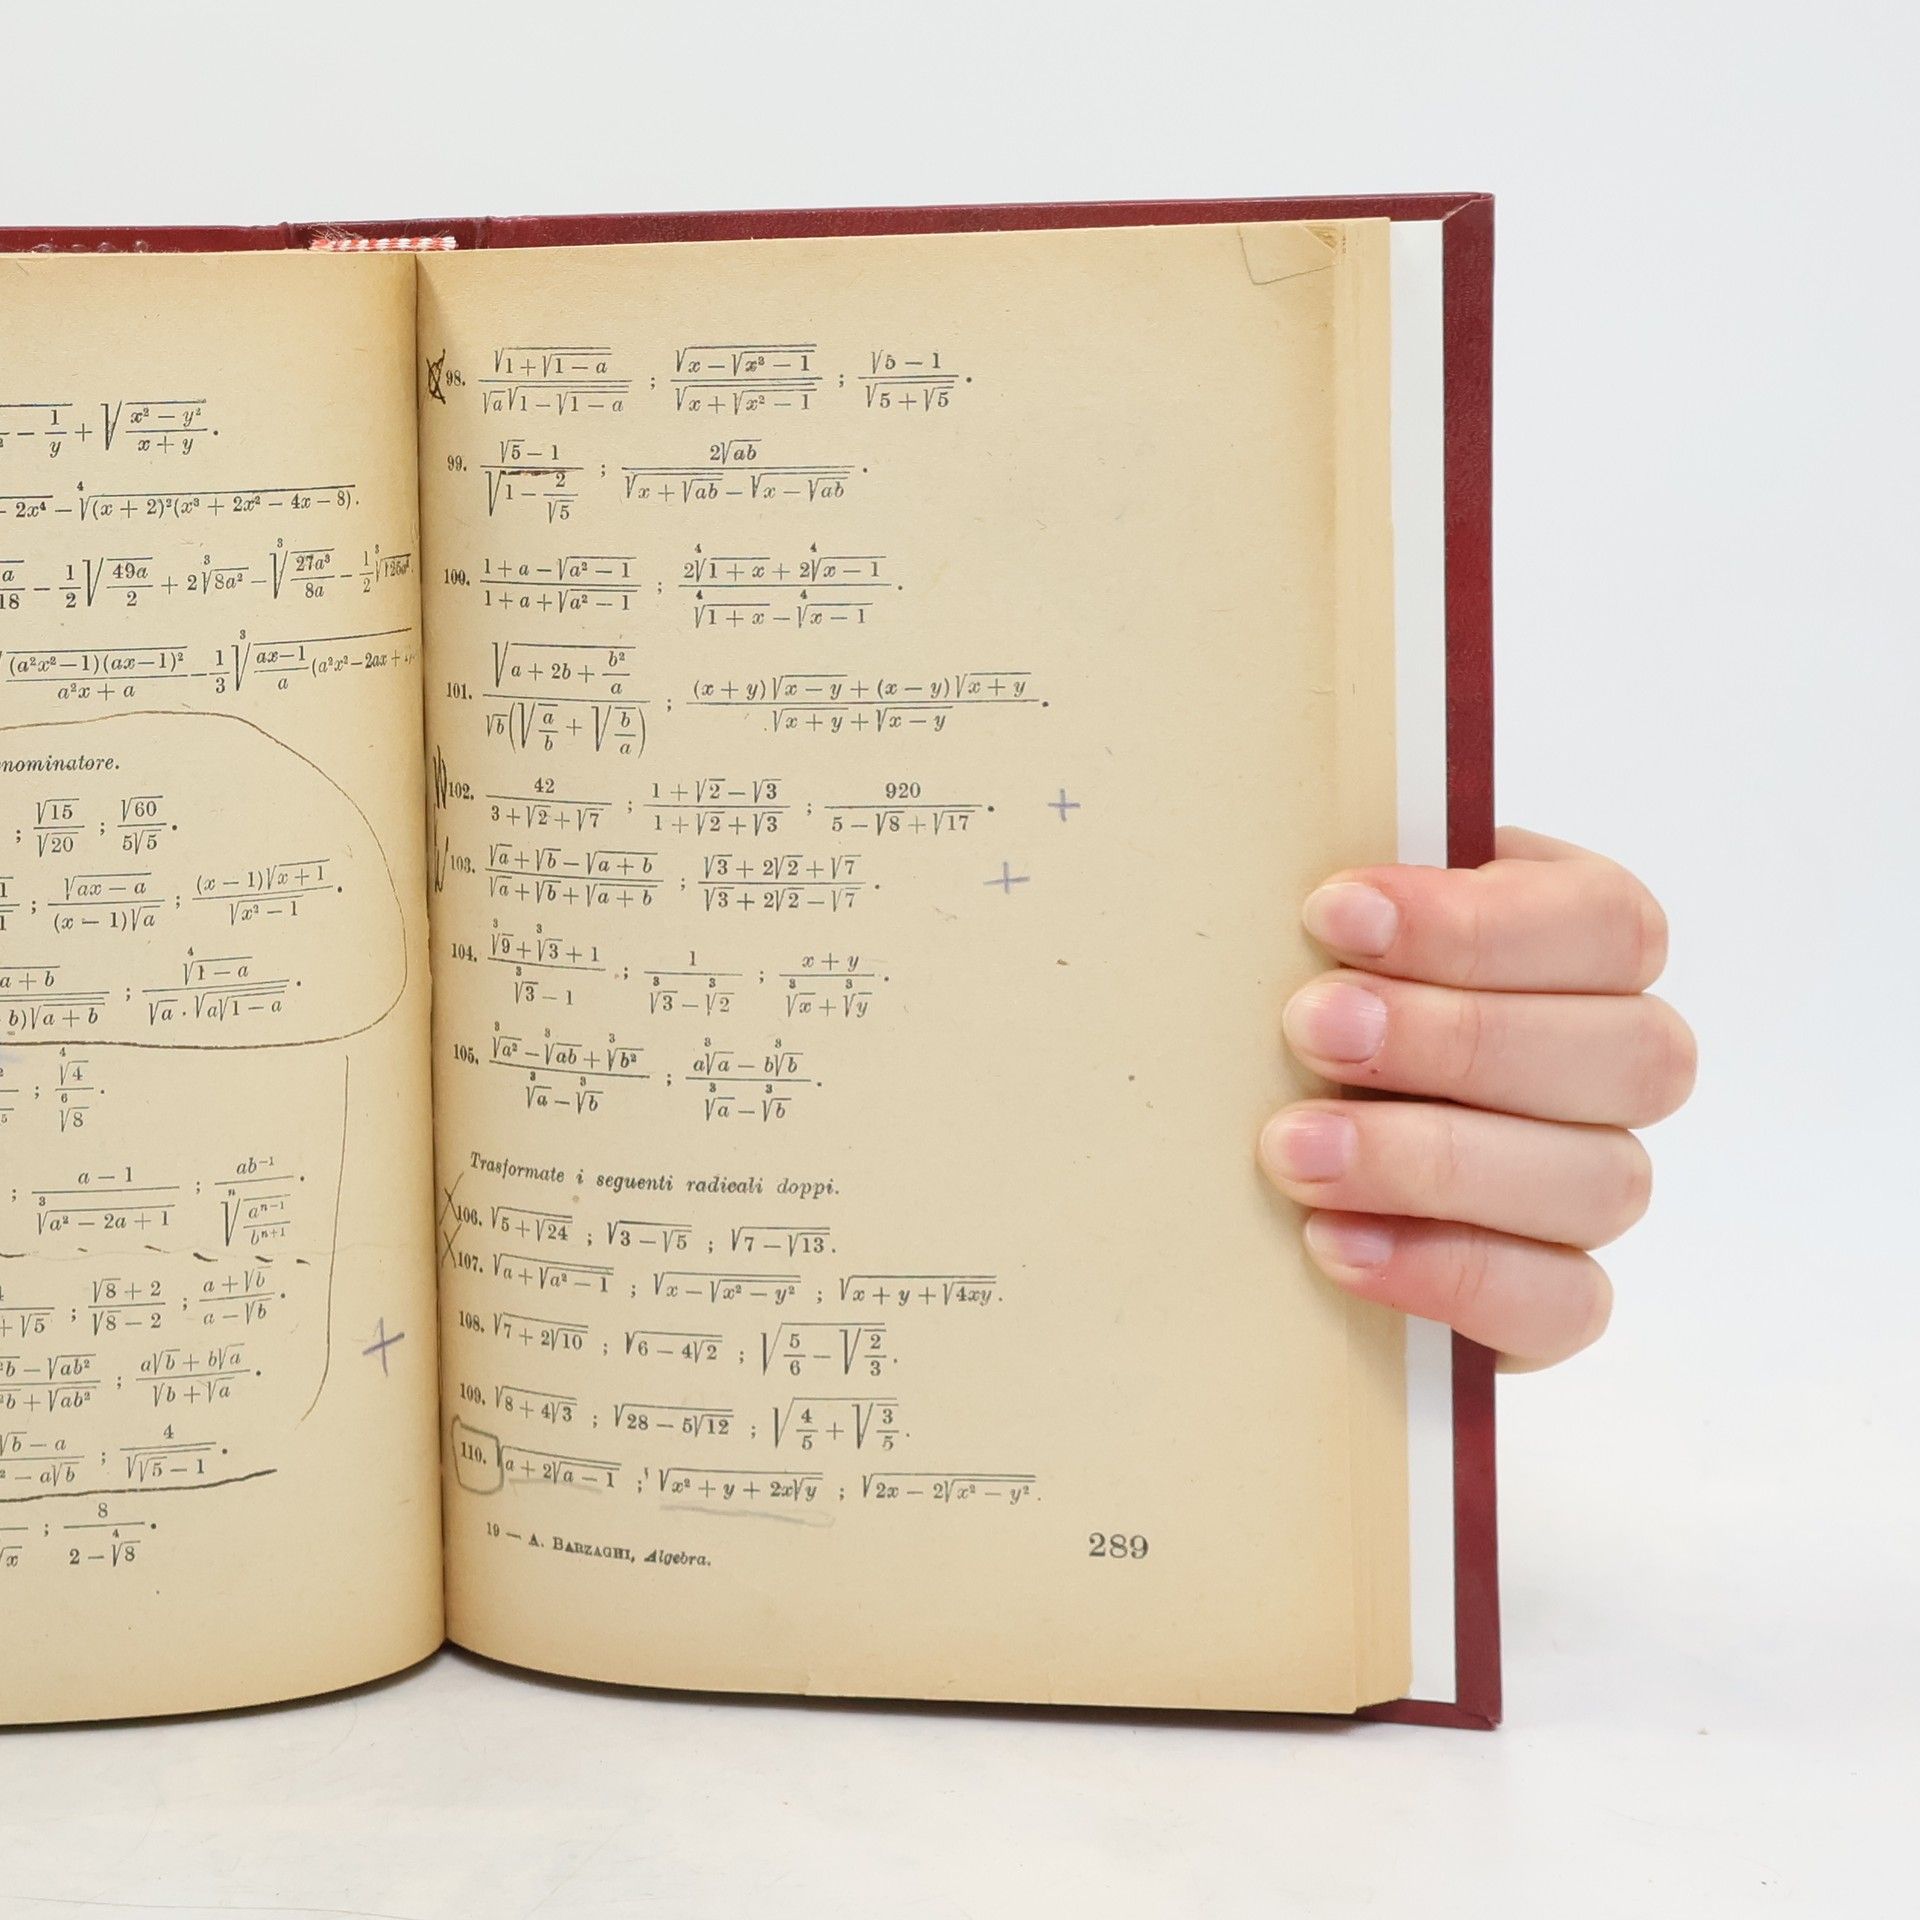 - 1/y + √((x² − y²)/(x + y)).
- 2x⁴ − ⁴√((x + 2)²(x³ + 2x² − 4x − 8)).
− 1/2 √(49a/2) + 2 ³√(8a²) − ³√(27a³/8a) − 1/2
(a²x²−1)(ax−1)²/(a²x + a) − 1/3 ³√((ax−1)/a (a²x²−2ax +
nominatore.
; √15/√20 ; √60/(5√5).
; √(ax − a)/((x − 1)√a) ; (x − 1)√(x + 1)/√(x² − 1).
a + b / b)√(a + b) ; ⁴√(1 − a)/(√a . √(a√(1 − a))).
; ⁴√4/⁶√8.
; (a − 1)/³√(a² − 2a + 1) ; ab⁻¹/ⁿ√(aⁿ⁻¹/bⁿ⁺¹).
+ √5 ; (√8 + 2)/(√8 − 2) ; (a + √b)/(a − √b).
b − √(ab²) / b + √(ab²) ; (a√b + b√a)/(√b + √a).
√b − a / − a√b ; 4/√(√5 − 1).
√x ; 8/(2 − ⁴√8).
98. √(1 + √(1 − a))/(√a √(1 − √(1 − a))) ; √(x − √(x² − 1))/√(x + √(x² − 1)) ; (√5 − 1)/√(5 + √5).
99. (√5 − 1)/√(1 − 2/√5) ; 2√(ab)/(√(x + √(ab)) − √(x − √(ab))).
100. (1 + a − √(a² − 1))/(1 + a + √(a² − 1)) ; (2⁴√(1 + x) + 2⁴√(x − 1))/(⁴√(1 + x) − ⁴√(x − 1)).
101. √(a + 2b + b²/a)/(√b(√(a/b) + √(b/a))) ; ((x + y)√(x − y) + (x − y)√(x + y))/(√(x + y) + √(x − y)).
102. 42/(3 + √2 + √7) ; (1 + √2 − √3)/(1 + √2 + √3) ; 920/(5 − √8 + √17). +
103. (√a + √b − √(a + b))/(√a + √b + √(a + b)) ; (√3 + 2√2 + √7)/(√3 + 2√2 − √7). +
104. (³√9 + ³√3 + 1)/(³√3 − 1) ; 1/(³√3 − ³√2) ; (x + y)/(³√x + ³√y).
105. (³√(a²) − ³√(ab) + ³√(b²))/(³√a − ³√b) ; (a³√a − b³√b)/(³√a − ³√b).
Trasformate i seguenti radicali doppi.
106. √(5 + √24) ; √(3 − √5) ; √(7 − √13).
107. √(a + √(a² − 1)) ; √(x − √(x² − y²)) ; √(x + y + √(4xy)).
108. √(7 + 2√10) ; √(6 − 4√2) ; √(5/6 − √(2/3)).
109. √(8 + 4√3) ; √(28 − 5√12) ; √(4/5 + √(3/5)).
110. √(a + 2√(a − 1)) ; √(x² + y + 2x√y) ; √(2x − 2√(x² − y²)).
19 — A. BARZAGHI, Algebra.
289